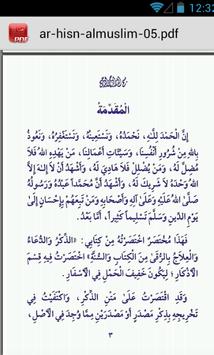 12:32
ar-hisn-almuslim-05.pdf
المُقَدِّمَةُ
إِنَّ الْحَمْدَ لِلَّهِ، نَحْمَدُهُ، وَنَسْتَعِينُهُ، وَنَسْتَغْفِرُهُ، وَنَعُوذُ
بِاللهِ مِنْ شُرُورِ أَنْفُسِنَا، وَسَيِّئَاتِ أَعْمَالِنَا، مَنْ يَهْدِهِ اللهُ فَلاَ
مُضِلَّ لَهُ، وَمَنْ يُضْلِلْ فَلاَ هَادِيَ لَهُ، وَأَشْهَدُ أَنْ لاَ إِلَهَ إِلاَّ
اللهُ وَحْدَهُ لاَ شَرِيكَ لَهُ، وَأَشْهَدُ أَنَّ مُحَمَّداً عَبْدُهُ وَرَسُولُهُ
صَلَّى اللهُ عَلَيْهِ وَعَلَى آلِهِ وَأَصْحَابِهِ وَمَنْ تَبِعَهُمْ بِإِحْسَانٍ إِلَى
يَوْمِ الدِّينِ وَسَلَّمَ تَسْلِيماً كَثِيراً، أَمَّا بَعْدُ:
فَهَذَا مُخْتَصَرٌ اخْتَصَرْتُهُ مِنْ كِتَابِي: «الذِّكْرُ وَالدُّعَاءُ
وَالْعِلاَجُ بِالرُّقَى مِنَ الْكِتَابِ وَالسُّنَّةِ» اخْتَصَرْتُ فِيهِ قِسْمَ
الأَذْكَارِ؛ لِيَكُونَ خَفِيفَ الْحَمْلِ فِي الأَسْفَارِ.
وَقَدِ اقْتَصَرْتُ عَلَى مَتْنِ الذِّكْرِ، وَاكْتَفَيْتُ فِي
تَخْرِيجِهِ بِذِكْرِ مَصْدَرٍ أَوْ مَصْدَرَيْنِ مِمَّا وُجِدَ فِي الأَصْلِ،
٣